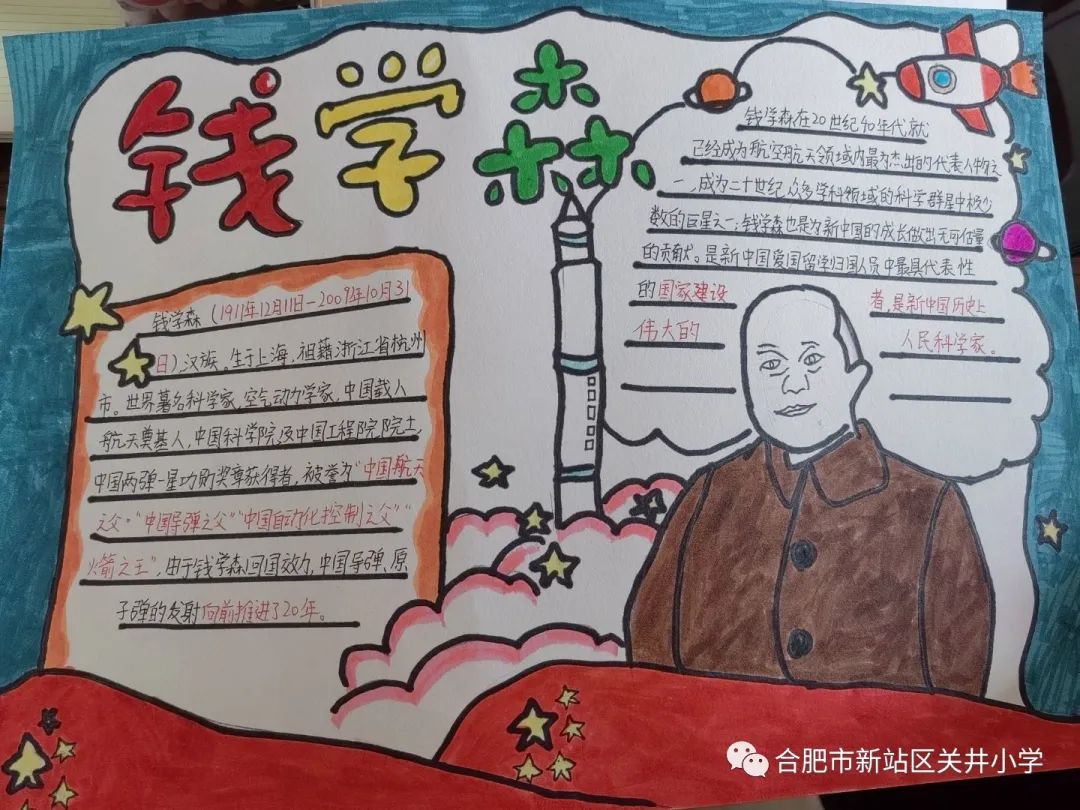 钱学森
钱学森（1911年12月11日—2009年10月31
日），汉族。生于上海，祖籍浙江省杭州
市。世界著名科学家，空气动力学家，中国载人
航天奠基人，中国科学院及中国工程院院士，
中国两弹一星功勋奖章获得者，被誉为“中国航天
之父”“中国导弹之父”“中国自动化控制之父”“
火箭之王”，由于钱学森回国效力，中国导弹、原
子弹的发射向前推进了20年。
钱学森在20世纪40年代就
已经成为航空航天领域内最为杰出的代表人物之
一，成为二十世纪众多学科领域的科学群星中极少
数的巨星之一；钱学森也是为新中国的成长做出无可估量
的贡献。是新中国爱国留学归国人员中最具代表性
的国家建设者，是新中国历史上
伟大的人民科学家。
合肥市新站区关井小学